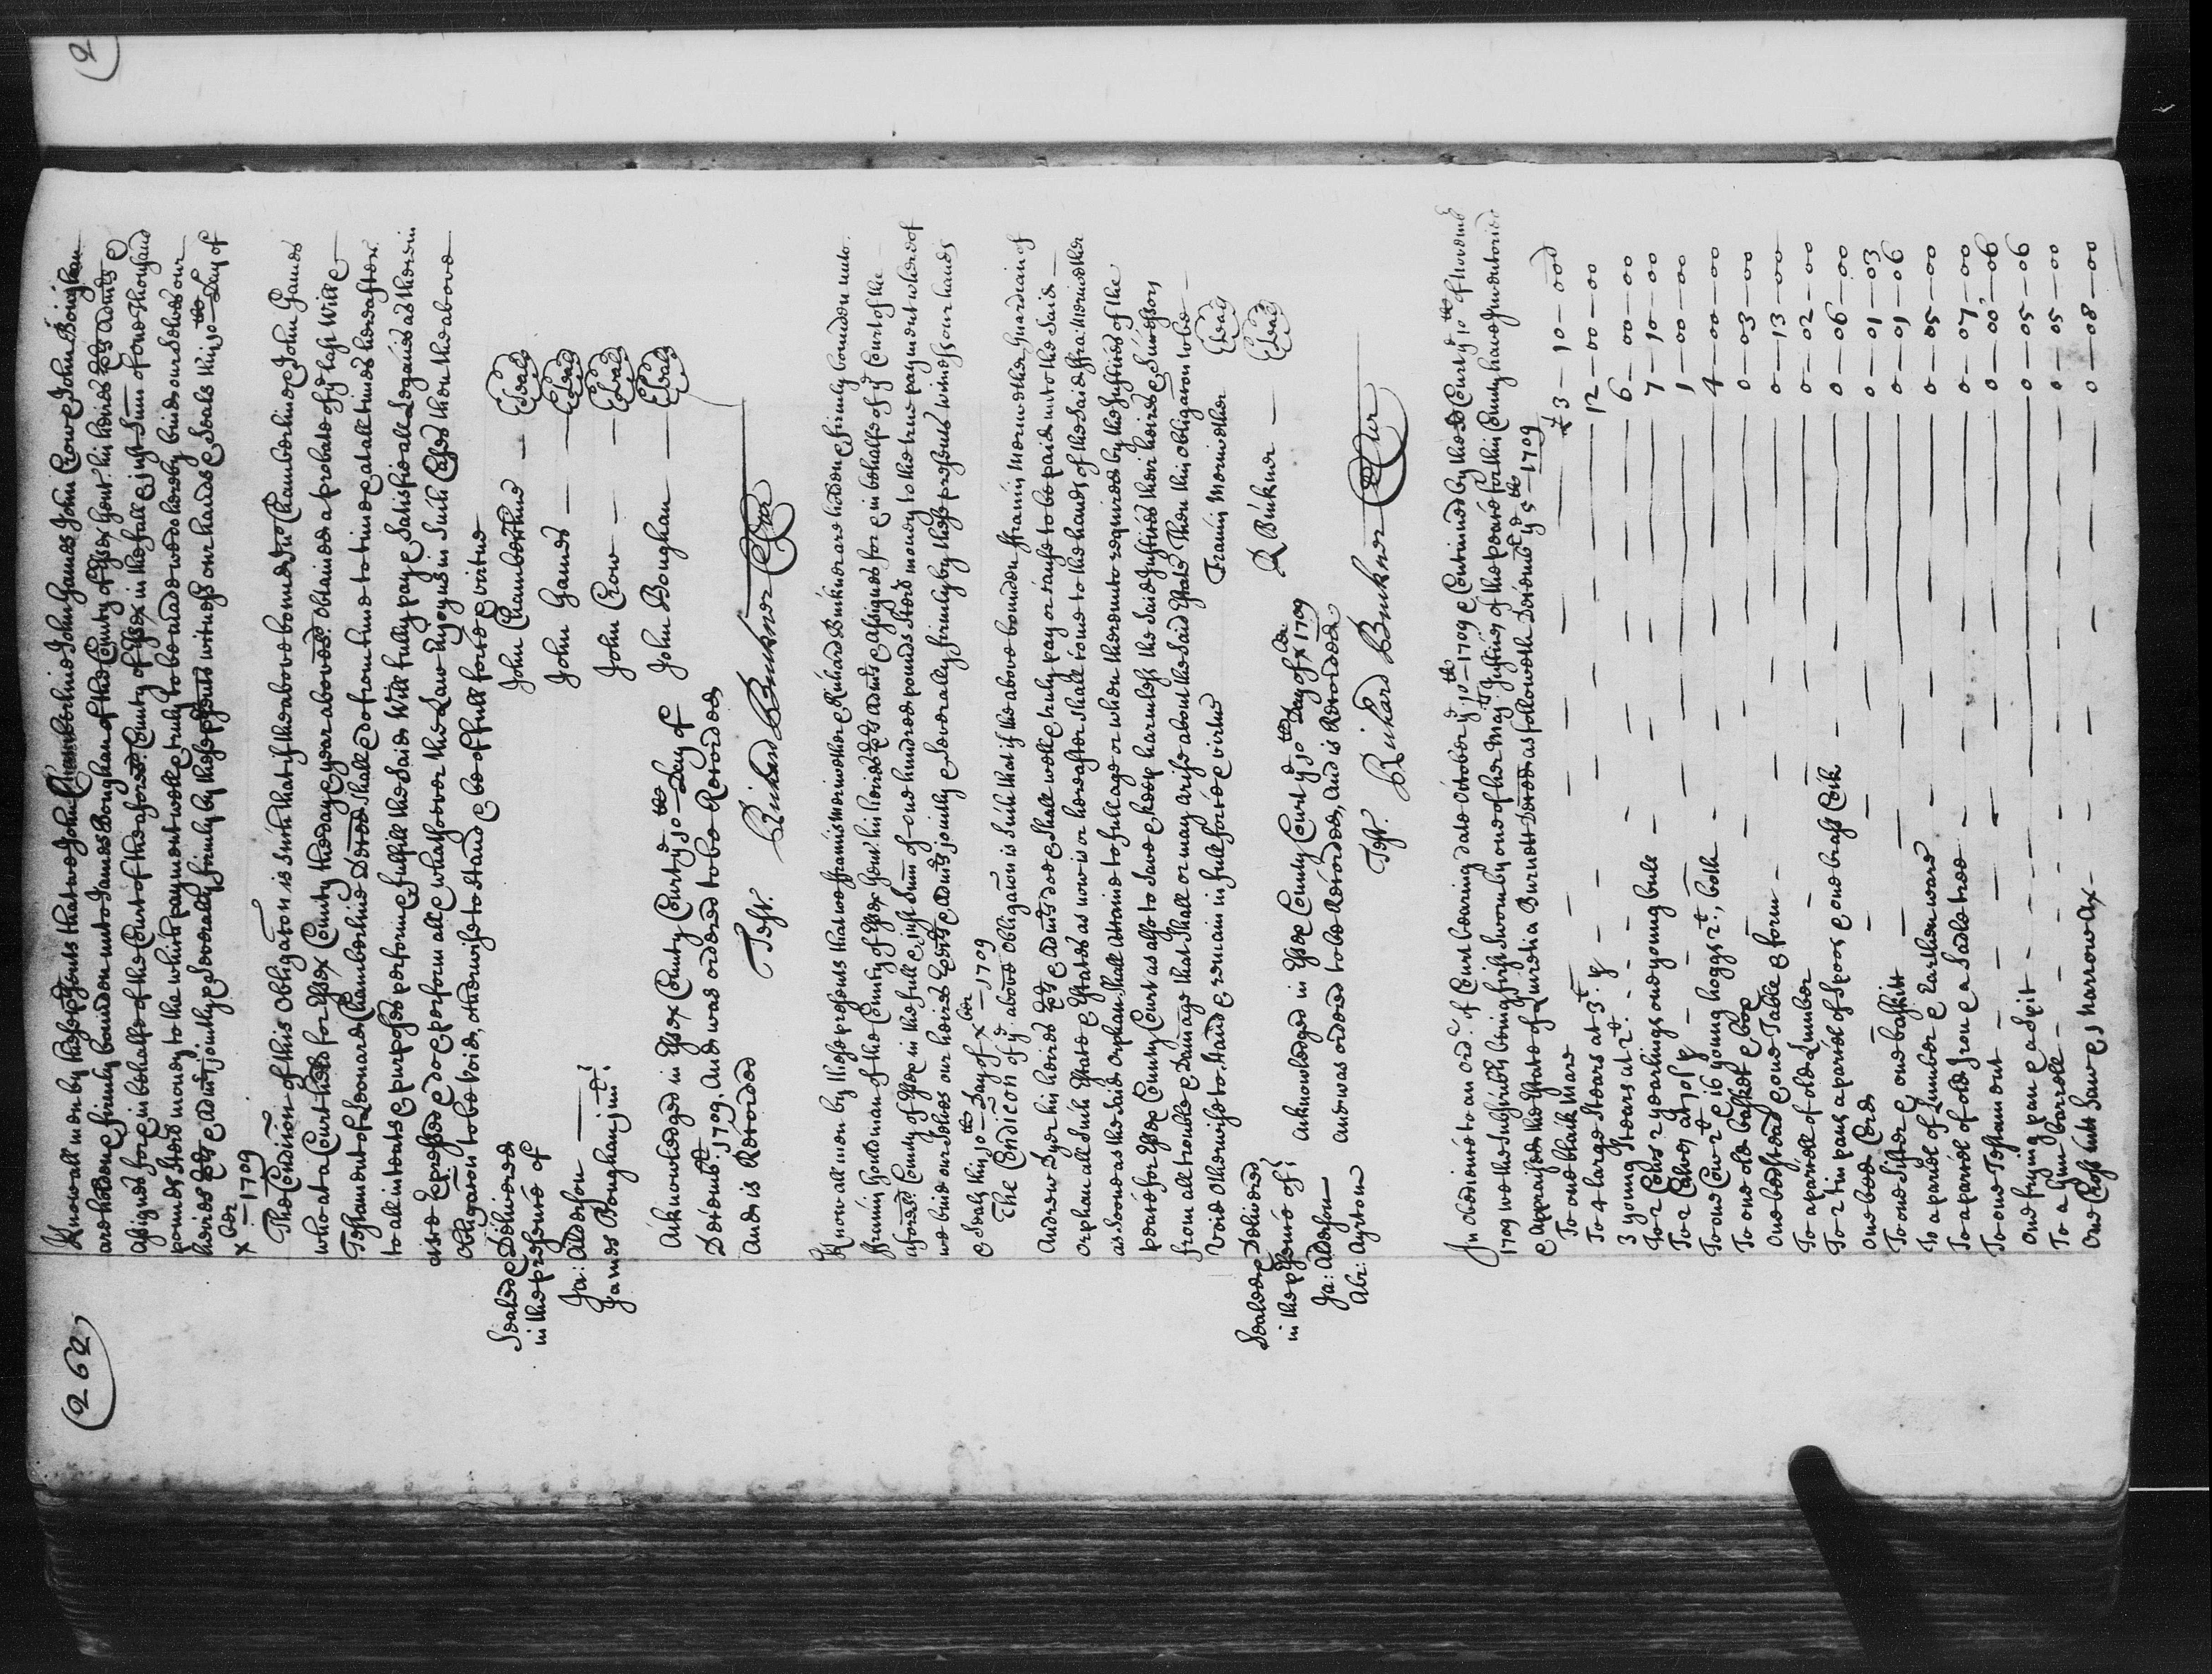 (262)
Know all men by these p̅sents that we John Chamberline John Games John Crow & John Boughan
are holden & firmly bounden unto James Boughan of the County of Essex Gent. his heires Exrs Admrs &
Assignes for & in behalfe of the Court of the afored. County of Essex in the full & just Sum of one thousand
pounds Sterl money to the which payment well & truly to be made wee do hereby bind ourselves our
heires Exrs & Admrs joyntly & Severally firmly by these p̅sents witness our hands & Seals this 10th Day of
Xber 1709
The Condic̅on of this Obligat̅on is Such that if the above bound Jno Chamberline & John Games
who at a Court held for Essex County the day & year aboved. Obtained a probate of ye last Will &
Testament of Leonard Chamberline Deced Shall & do from time to time & at all times hereafter
to all intents & purposes performe & fulfill the Said Will fully pay & Satisfie all Legacies as therein
are Expressed & do & perform all & whatsoever the Law injoynes in Such Cases then the above
Obligac̅on to be Void, otherwise to Stand & be of full force & virtue
Sealed & Delivered
in the presence of
Ja: Alderson
James Boughan junr.
John Chamberline Seal
John Games Seal
John Crow Seal
John Boughan Seal
Acknowledged in Essex County Court ye 10th Day of
Decembr. 1709. And was ordered to be Recorded
And is Recorded
Test. Richard Buckner Cl Cur
Know all men by these presents that we ffrancis Meriwether & Richard Buckner are holden & firmly bounden unto
ffrancis Gouldman of the County of Essex Gent. his heires Exrs Admrs & Assignes for & in behalfe of ye Court of the
afored. County of Essex in the full & just Sum of one hundred pounds Sterl money to the true payment whereof
we bind our Selves our heires Exrs & Admrs joyntly & Severally firmly by these presents witness our hands
& Seals this 10th Day of Xber 1709
The Condic̅on of ye above Obligac̅on is Such that if the above bounden ffrancis Meriwether Guardian of
Andrew Dyer his heires Exrs & Admrs doe & Shall well & truly pay or cause to be paid unto the Said
Orphan all Such Estate & Estates as now is or hereafter Shall come to the hands of the Said ffra: Meriwether
as soone as the Said Orphan Shall Attaine to full age or when thereunto required by the Justices of the
peace for Essex County Court as also to Save & keep harmless the Said Justices their heires & Successors
from all trouble & Damage that Shall or may arise about the Said Estate Then this Obligac̅on to be
Void Otherwise to Stand & remain in full force & virtue
Sealed & Delivered
in the p̅sence of
Ja: Alderson
Abr: Ayrton
Francis Meriwether Seal
R Buckner Seal
Acknowledged in Essex County Court ye 10th Day of Xber 1709
And was ordered to be Recorded, And is Recorded
Test. Richard Buckner Cl Cur
In obedience to an Ordr. of Court bearing date October ye 10th 1709 & Continued by the sd Court ye 10th of Novembr
1709 we the Subscribers being first Sworn by one of her Majts. Justices of the peace for this County have Inventoried
& Appraised the Estate of Burnett Deced as followeth Decembr ye 5th 1709
To one black Mare £3 — 10 — 00d
To 4 large Stears at 3£ p 12 — 00 — 00
3 young Stears at 2£ 6 — 00 — 00
To 2 Cows 2 yearlings one young bull 7 — 10 — 00
To 2 Calves at 10s p 1 — 00 — 00
To one Cow 2£ & 16 young hoggs 2£, both 4 — 00 — 00
To one old basket & box 0 — 03 — 00
One bedstead & one Table & form 0 — 13 — 00
To a parcell of old Lumber 0 — 02 — 00
To 2 tin pans a parcel of Spoons & one brass Cock 0 — 06 — 00
One bed Cord 0 — 01 — 03
To one Sifter & one baskitt 0 — 01 — 06
To a parcel of Lumber & Earthen ware 0 — 05 — 00
To a parcel of old Iron & a Sadle tree 0 — 07 — 00
To one Testam ent 0 — 00 — 06
One frying pan & a Spit 0 — 05 — 06
To a Gunn barrell 0 — 05 — 00
One Cross Cutt Saw & 1 narrow Ax 0 — 08 — 00